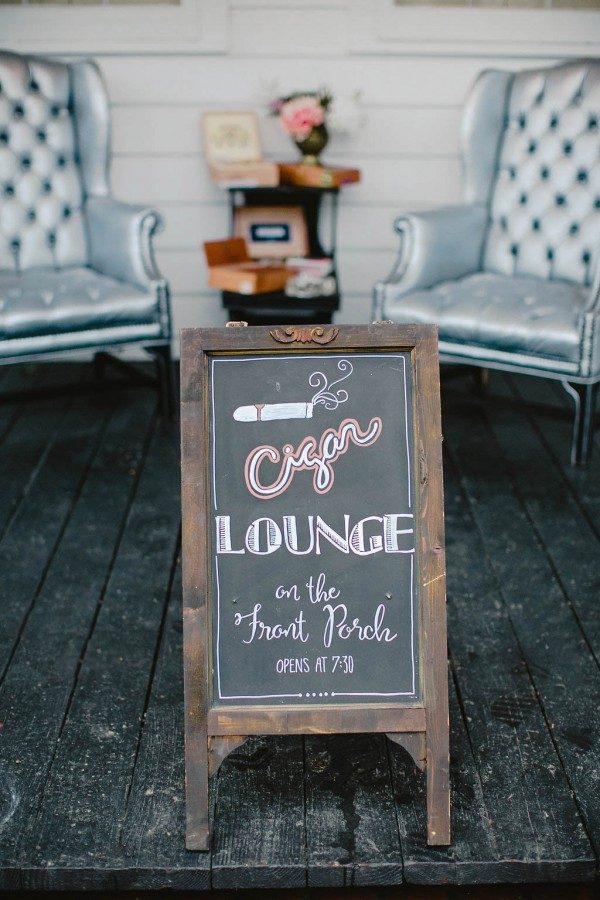 Cigar
LOUNGE
on the
Front Porch
OPENS AT 7:30